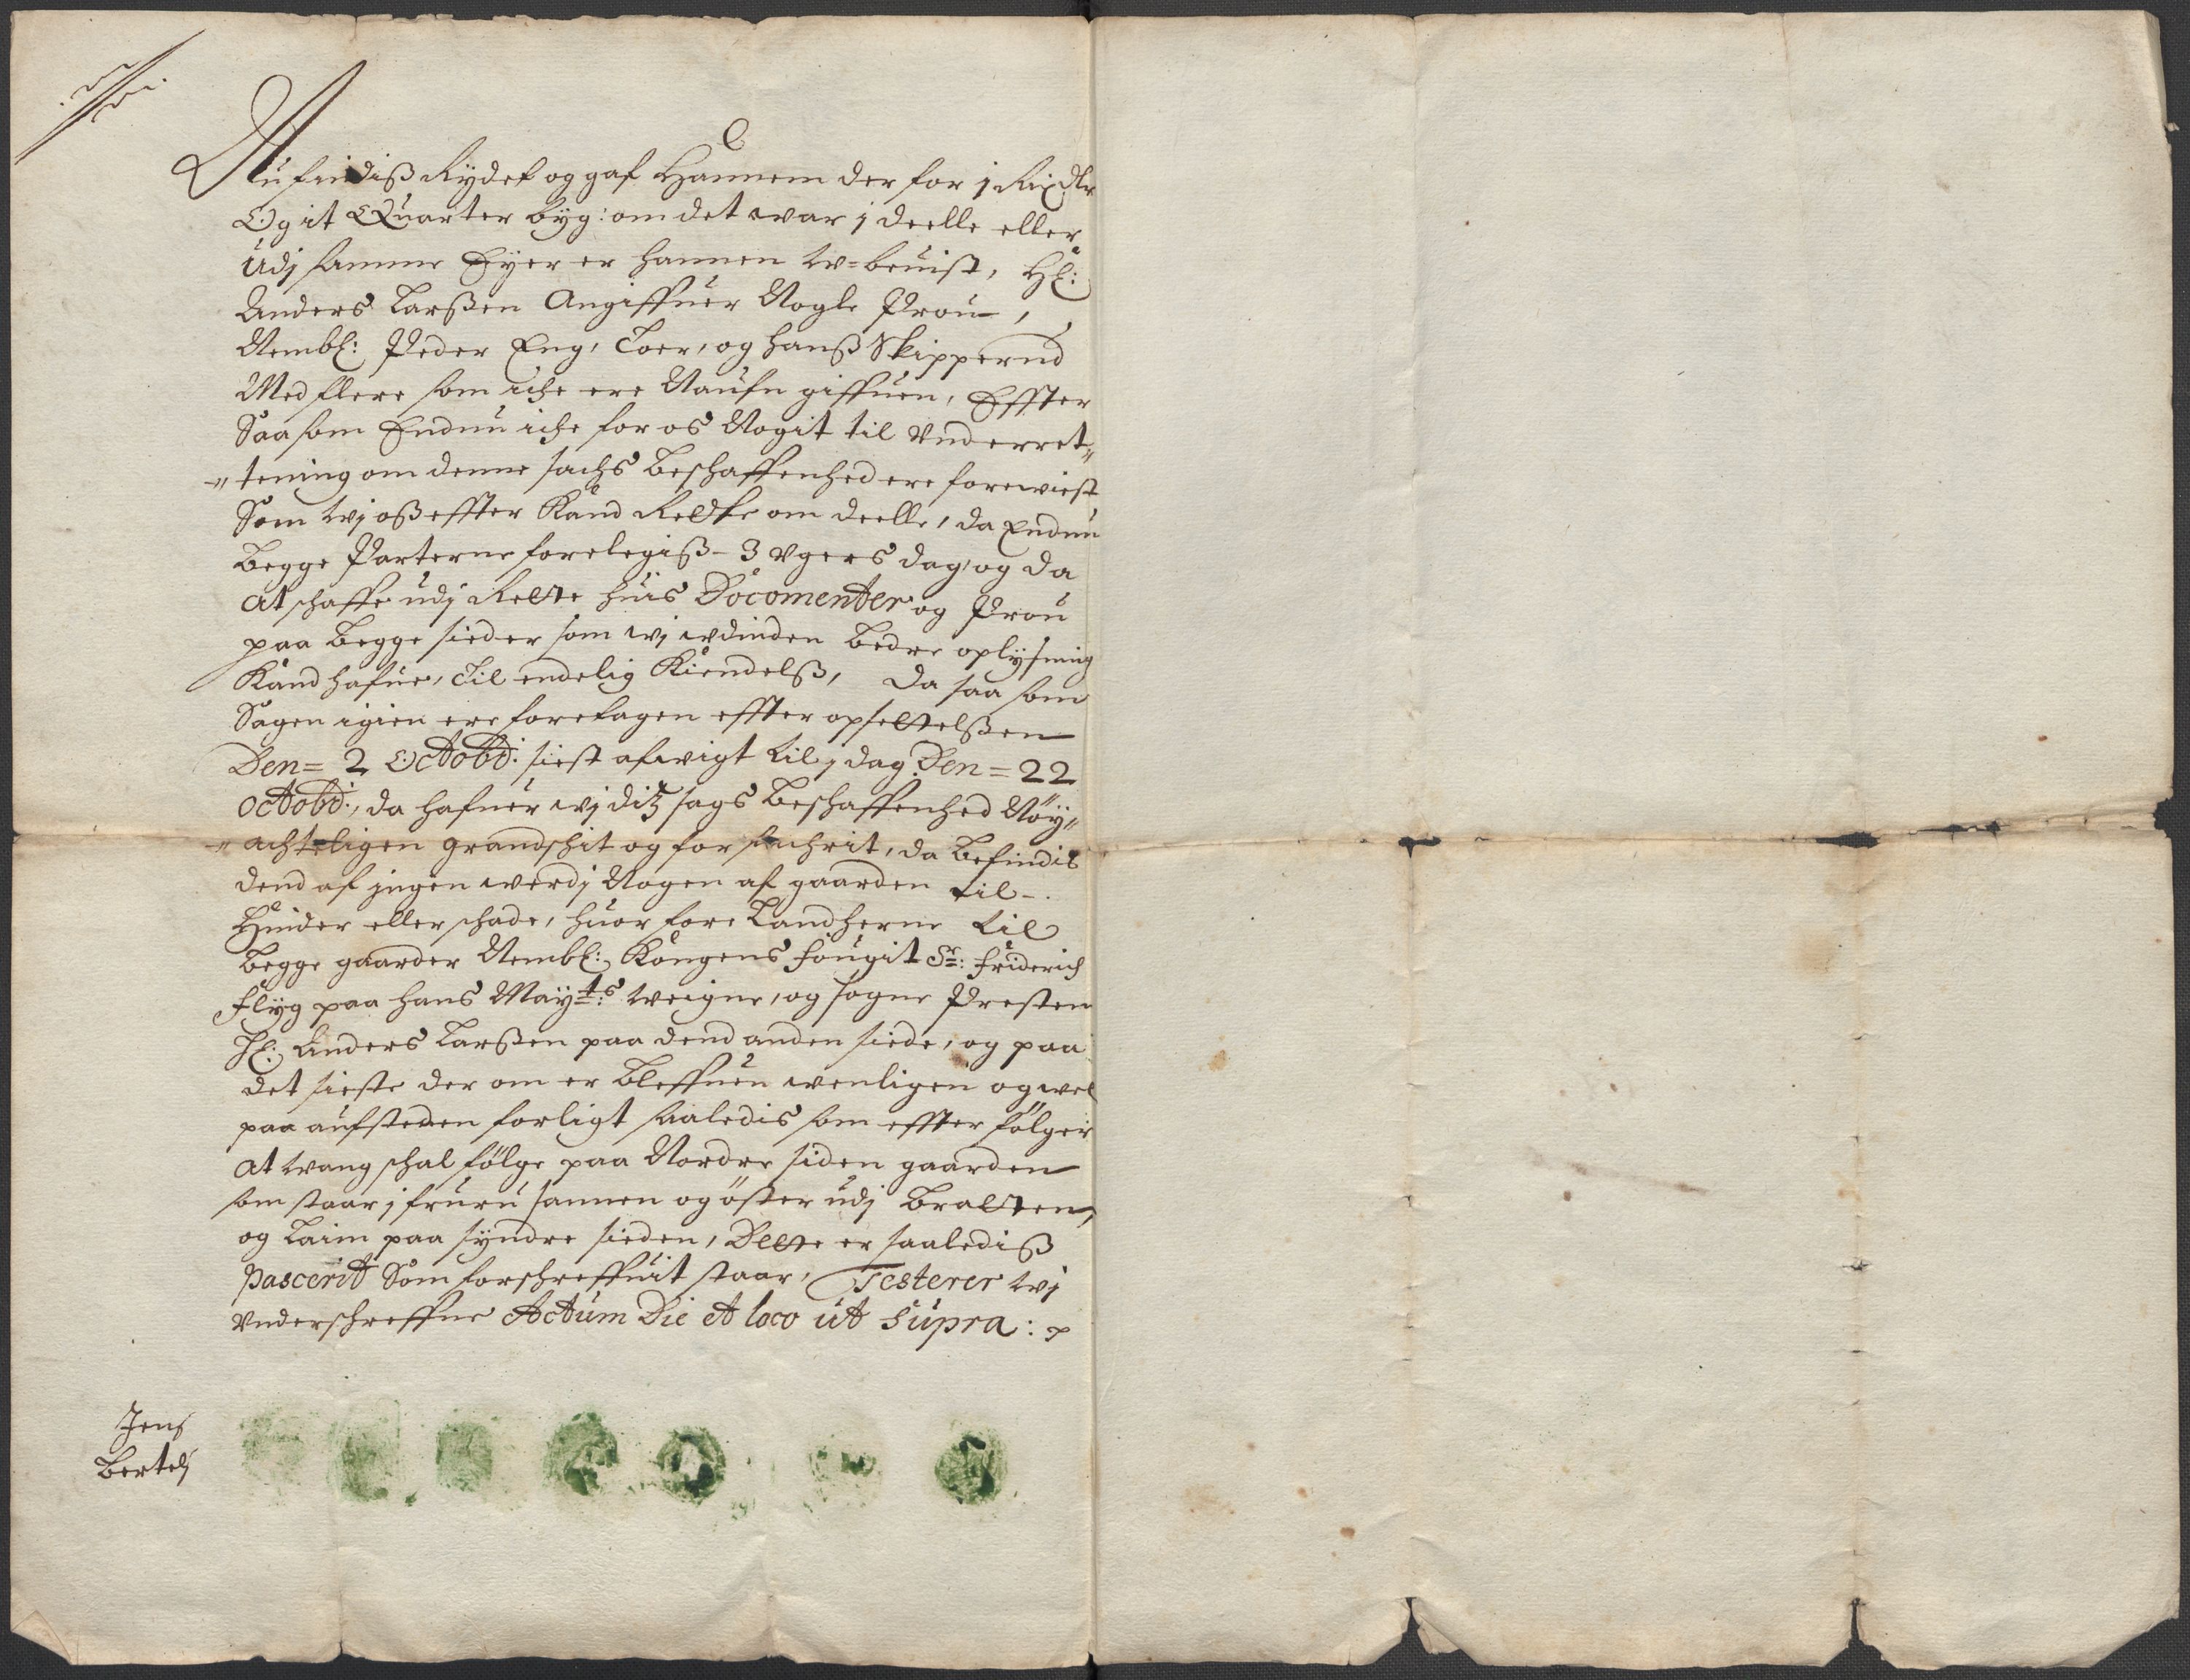 Aufindiß Rydet og gaf Hannem der for j Rixdlr
Og it Quarter byg: om det war j deelle eller
Udj samme Eyer er hannem w=beuist, Hl:
Anders Larßen Angiffuer Nogle Prou,
Nembl: Peder Eng, Toer, og hanß Skipperud
Med flere som iche ere Naufn giffuen, Effter
Saasom Endnu iche for os Nogit til Underret„
„tening om denne sachs beschaffenhed ere forewiest
Som wj oß effter Kand Rette om deelle, da Endnu
begge Parterne forelegiß 3 Ugers dag, og da
at schaffe udj Rette huis Documenter og Prou
paa begge sieder som wj widinden bedre oplysning
Kand hafue, til endelig Kiendelß, da saa som
Sagen igien ere foretagen effter opsettelßen
Den= 2 Octobr: siest afwigt til j dag Den=22
Octobr:, da hafuer wj ditz sags beschaffenhed Nöy„
„achteligen grandschit og forsuchrit, da befindis
dend af jngen werdj Nogen af gaarden til
Hinder eller schade, huor fore Landherne til
begge gaarder Nembl: Kongens fougit Sr: friderich
flyg paa hans Mayts: weigne, og sogne Presten
Hl: Anders Larßen paa dend anden siede, og paa
det sieste der om er bleffuen wenligen og wel
paa aufsteden forligt saaledis som effter fölger
at wang schal fölge paa Nordre siden gaarden
som staar j furu sannen og öster udj bratten,
og Laim paa syndre sieden, Dette er saalediß
Pascerit Som forschreffuit staar, Testerer wj
Underschreffne Actum Die et loco ut supra: p
Jens
Bertels